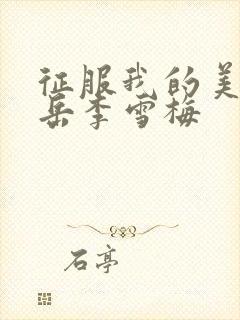 征服我的美
岳李雪梅
石亭